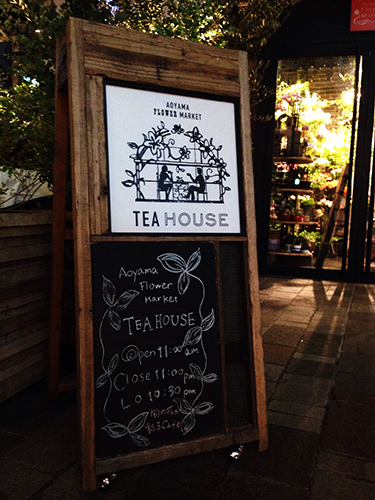 AOYAMA
FLOWER MARKET
TEA HOUSE
Aoyama
Flower
Market
TEA HOUSE
Open 11:00 am
Close 11:00 pm
L O 10:30 pm
Cafe